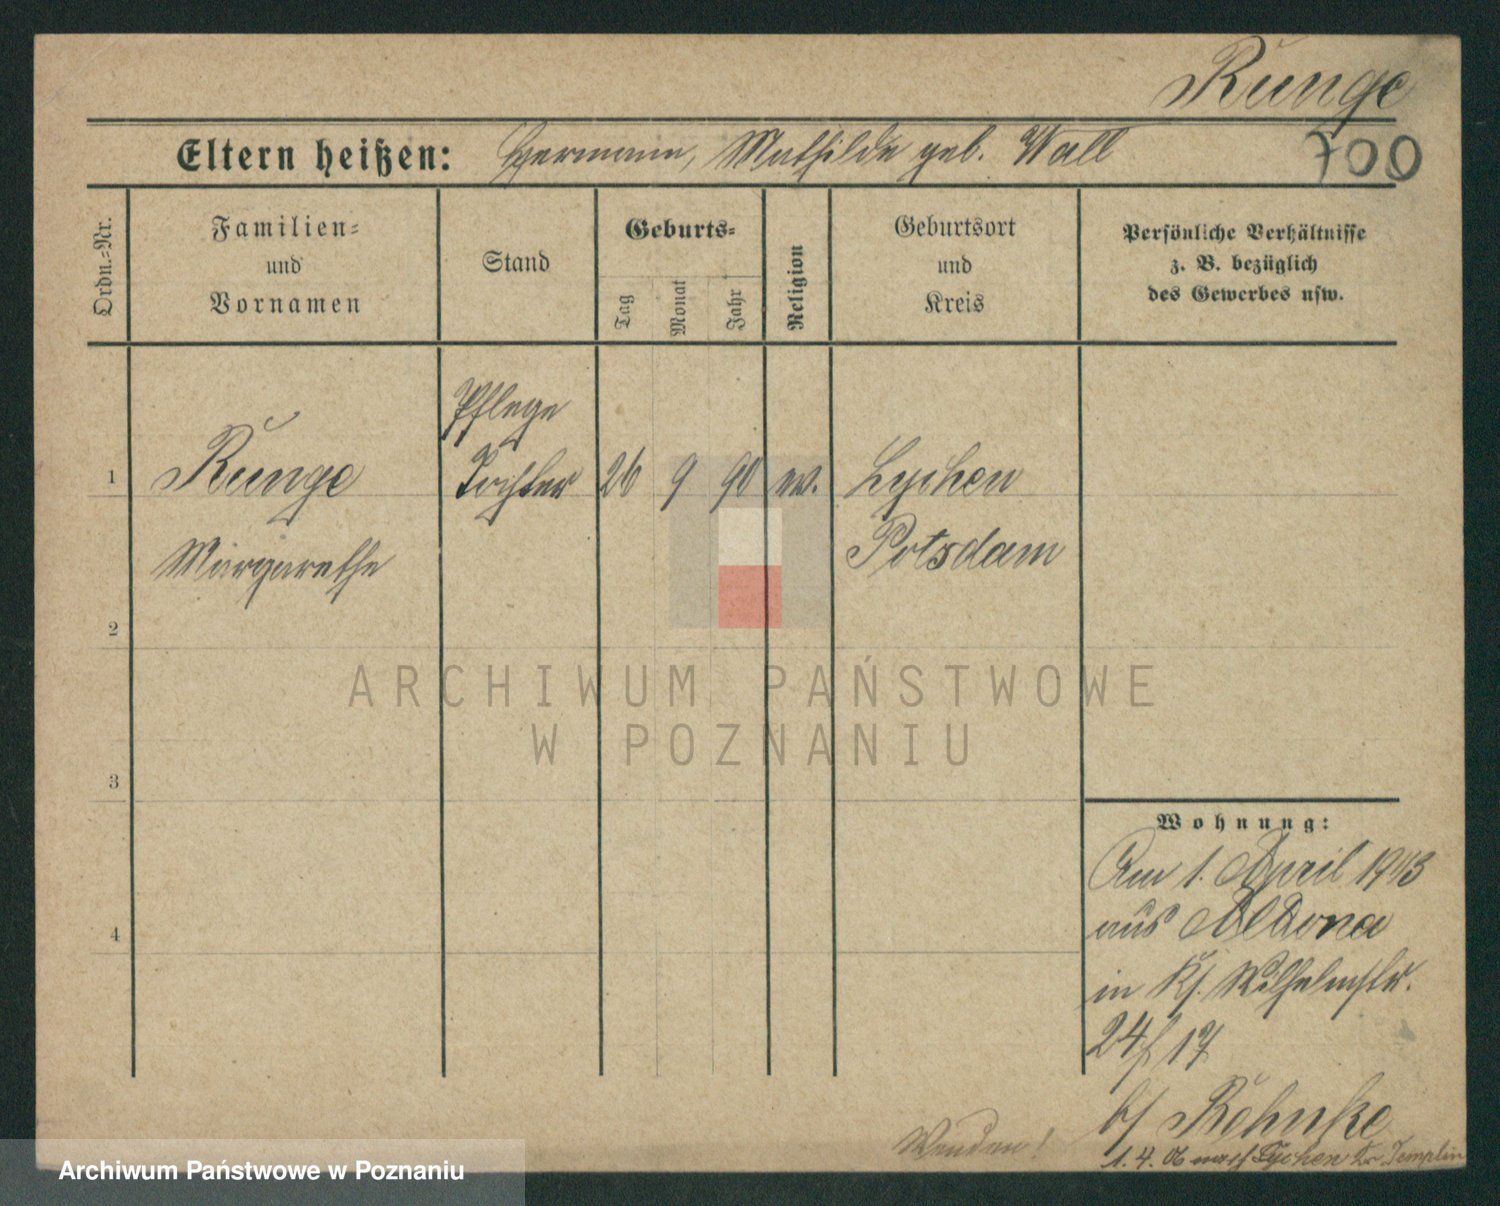 Runge
Eltern heißen: Hermann, Mathilde geb. Wall
700
Ordn.-Nr.
Familien-
und
Vornamen
Stand
Geburts-
Tag
Monat
Jahr
Religion
Geburtsort
und
Kreis
Persönliche Verhältnisse
z. B. bezüglich
des Gewerbes usw.
1
Runge
Margarethe
Pflege
Tochter
26 9 90 ev.
Lychen
Potsdam
2
3
4
ARCHIWUM PAŃSTWOWE
W POZNANIU
Wohnung:
Am 1. April 1903
aus
in Kf. Wilhelmstr.
24/17
b/ Röhnke
Wenden!
1. 4. 06 nach Lychen Kr. Templin
Archiwum Państwowe w Poznaniu